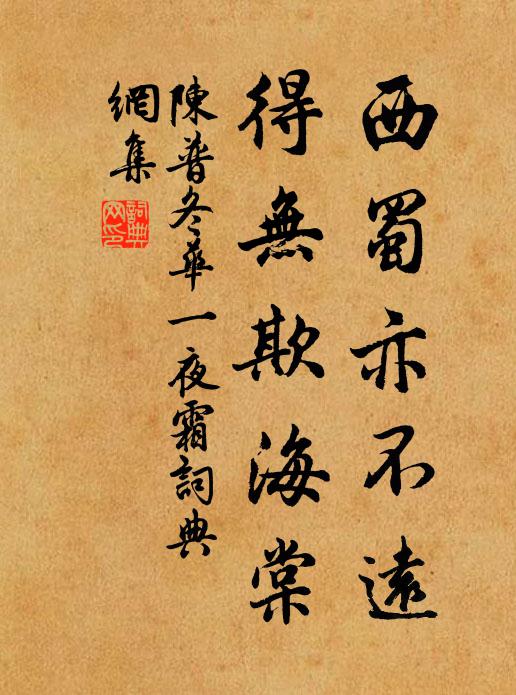 西蜀亦不遠
得無欺海棠
陳普冬華一夜霜詞典
網集